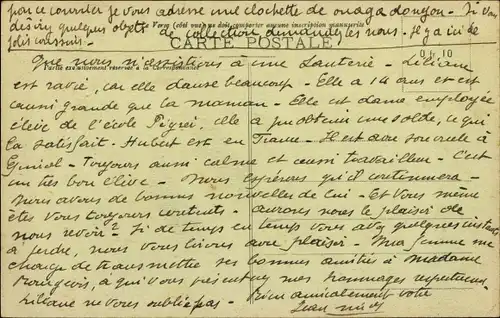 par ce courrier je vous adresse une clochette de
désirez quelques objets de collection demandez les nous. Il y a ici de
jolis
CARTE POSTALE
Partie exclusivement réservée à la Correspondance
que nous n'assistions à une Sauterie - Liliane
est ravie, car elle danse beaucoup. Elle a 14 ans et est
aussi grande que la maman - Elle est dame employée
élève de l'école elle a pu obtenir une solde, ce qui
la satisfait. Hubert est en France - Il est avec son oncle à
Toujours aussi calme et aussi travailleur - C'est
un très bon élève - Nous espérons qu'il continuera -
Nous avons de bonnes nouvelles de lui - Et vous même
êtes vous toujours contents - aurons nous le plaisir de
vous revoir? Si de temps en temps vous avez quelques instants
à perdre, nous vous lirons avec plaisir - Ma femme me
charge de transmettre ses bonnes amitiés à Madame
à qui vous présentez mes hommages respectueux
Liliane ne vous oublie pas - Bien amicalement votre
Jean